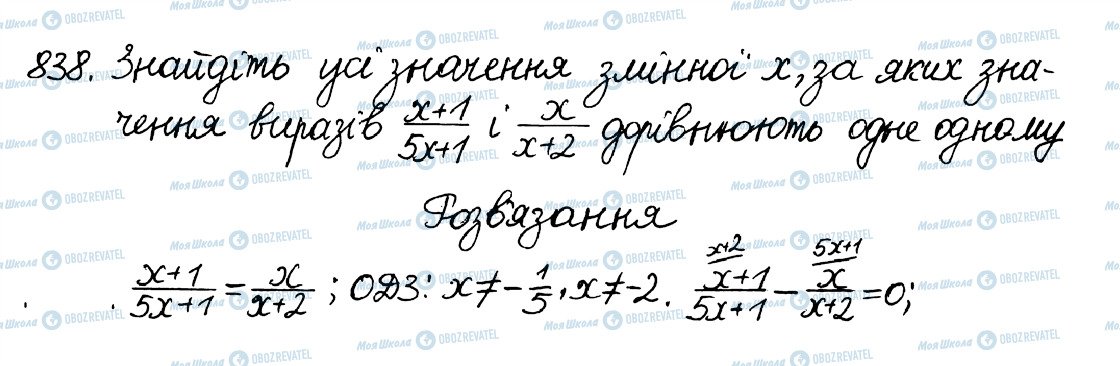 838. Знайдіть усі значення змінної x, за яких зна-
чення виразів (x+1)/(5x+1) і x/(x+2) дорівнюють одне одному
Розв'язання
(x+1)/(5x+1) = x/(x+2) ; ОДЗ: x ≠ -1/5, x ≠ -2. (x+1)/(5x+1) (x+2) - x/(x+2) (5x+1) = 0;
МояШкола OBOZREVATEL